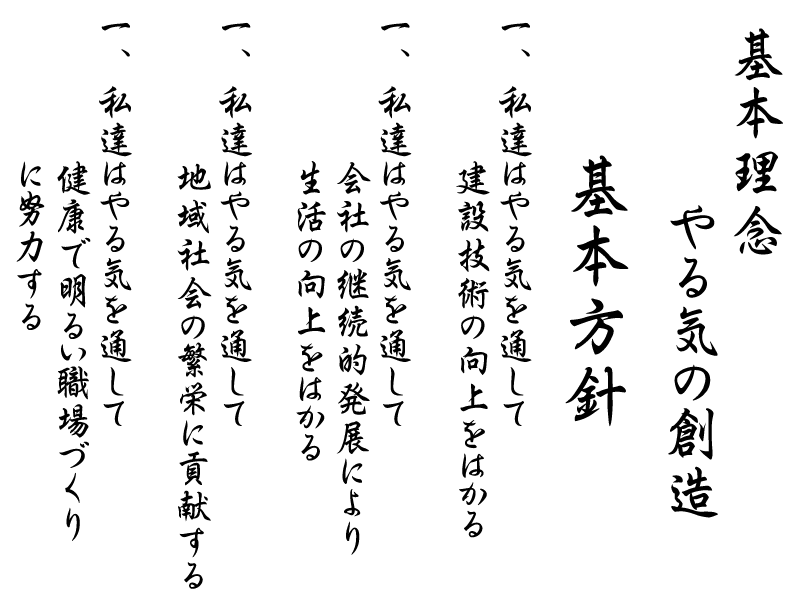 基本理念
やる気の創造
基本方針
一、私達はやる気を通して
建設技術の向上をはかる
一、私達はやる気を通して
会社の継続的発展により
生活の向上をはかる
一、私達はやる気を通して
地域社会の繁栄に貢献する
一、私達はやる気を通して
健康で明るい職場づくり
に努力する